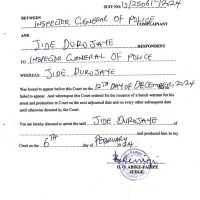 SUIT NO: 15/25061/2024
BETWEEN
INSPECTOR GENERAL OF POLICE
COMPLAINANT
AND
JIDE DUROJAYE
RESPONDENT
TO INSPECTOR GENERAL OF POLICE
WHEREAS JIDE DUROJAYE
Was bound to appear before this Court on the 12TH DAY OF DECEMBER, 2024
failed to appear. And whereupon this Court ordered for the issuance of a bench warrant for his
arrest and production in Court on the next adjourned date and on every other subsequent date
until otherwise directed by the Court.
You are hereby directed to arrest the said JIDE DUROJAYE
of and produced him in my
Court on the 6TH day of FEBRUARY
JUDGE